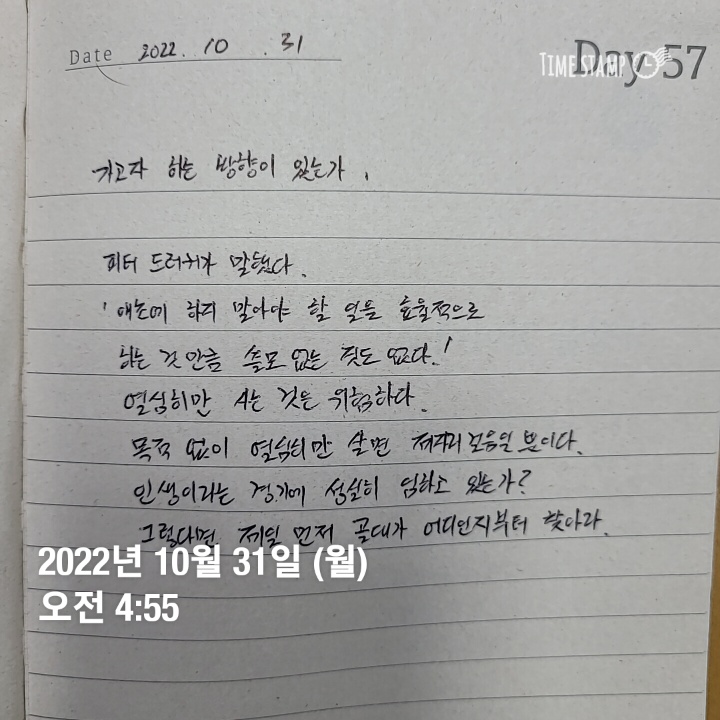 Date 2022. 10 . 31
TIMESTAMP
Day 57
가고자 하는 방향이 있는가.
피터 드러커가 말했다.
'애초에 하지 말아야 할 일을 효율적으로
하는 것 만큼 쓸모 없는 짓도 없다.'
열심히만 사는 것은 위험하다.
목적 없이 열심히만 살면 제자리걸음일 뿐이다.
인생이라는 경기에 성실히 임하고 있는가?
그렇다면, 제일 먼저 골대가 어디인지부터 찾아라.
2022년 10월 31일 (월)
오전 4:55